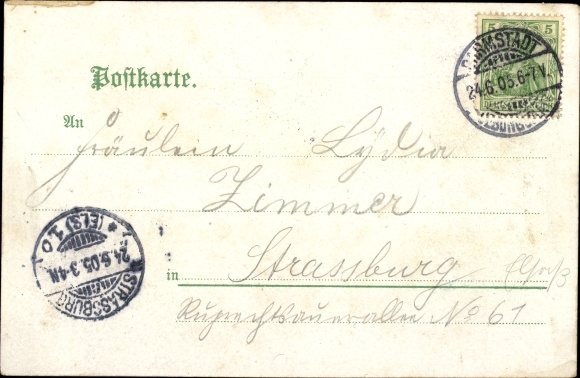 5 5
DARMSTADT
24.6.05.6-7V
Postkarte.
An
Fräulein Lydia
Zimmer
in Strassburg Elsaß
Ruprechtsauerallee No 61
STRASSBURG
24.6.05.3-4N
(ELS) 1